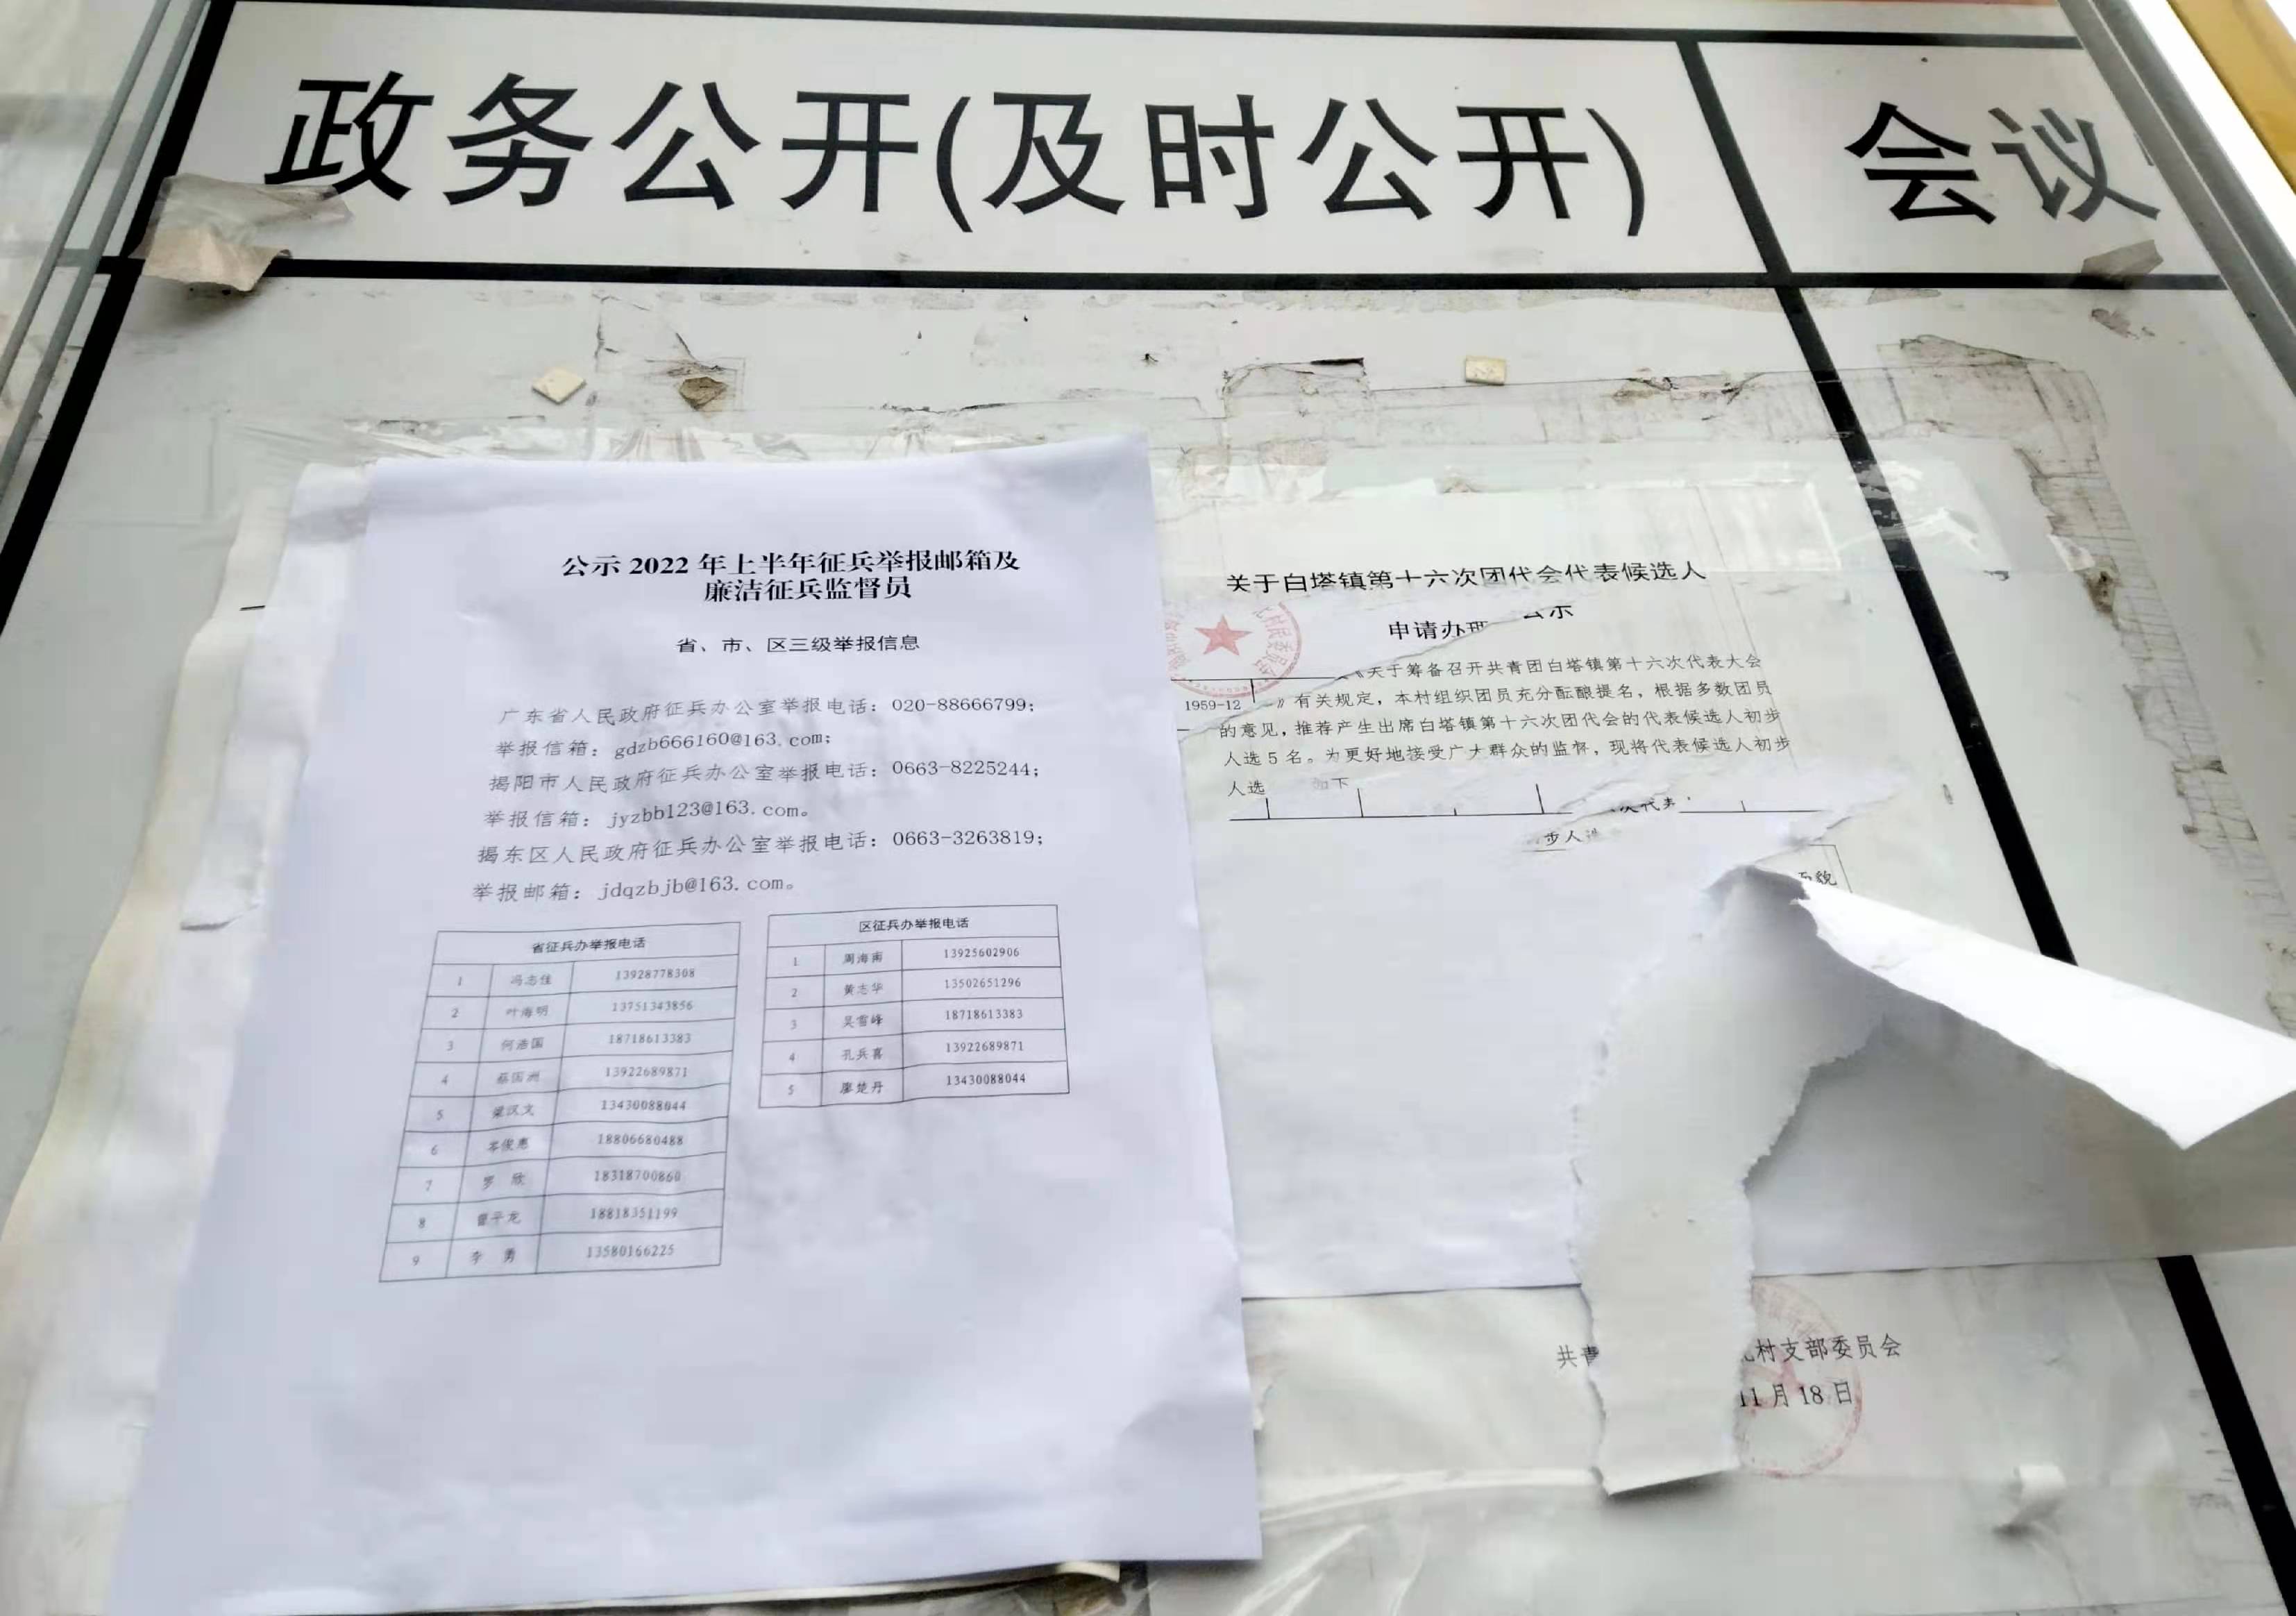 政务公开(及时公开)
会议
公示 2022 年上半年征兵举报邮箱及
廉洁征兵监督员
省、市、区三级举报信息
广东省人民政府征兵办公室举报电话：020-88666799；
举报信箱：gdzb666160@163.com；
揭阳市人民政府征兵办公室举报电话：0663-8225244；
举报信箱：jyzbb123@163.com。
揭东区人民政府征兵办公室举报电话：0663-3263819；
举报邮箱：jdqzbjb@163.com。
省征兵办举报电话
1 冯志佳 13928778308
2 叶海明 13751343856
3 何浩国 18718613383
4 蔡国洲 13922689871
5 梁汉文 13430088044
6 岑俊惠 18806680488
7 罗欣 18318700860
8 曾平龙 18818351199
9 李勇 13580166225
区征兵办举报电话
1 周海南 13925602906
2 黄志华 13502651296
3 吴雷峰 18718613383
4 孔兵喜 13922689871
5 廖楚丹 13430088044
关于白塔镇第十六次团代会代表候选人
申请办理 公示
村民委员会
1959-12
《关于筹备召开共青团白塔镇第十六次代表大会
》有关规定，本村组织团员充分酝酿提名，根据多数团员
的意见，推荐产生出席白塔镇第十六次团代会的代表候选人初步
人选 5 名。为更好地接受广大群众的监督，现将代表候选人初步
人选 如下
次代表
步人选
面貌
共青 村支部委员会
11 月 18 日